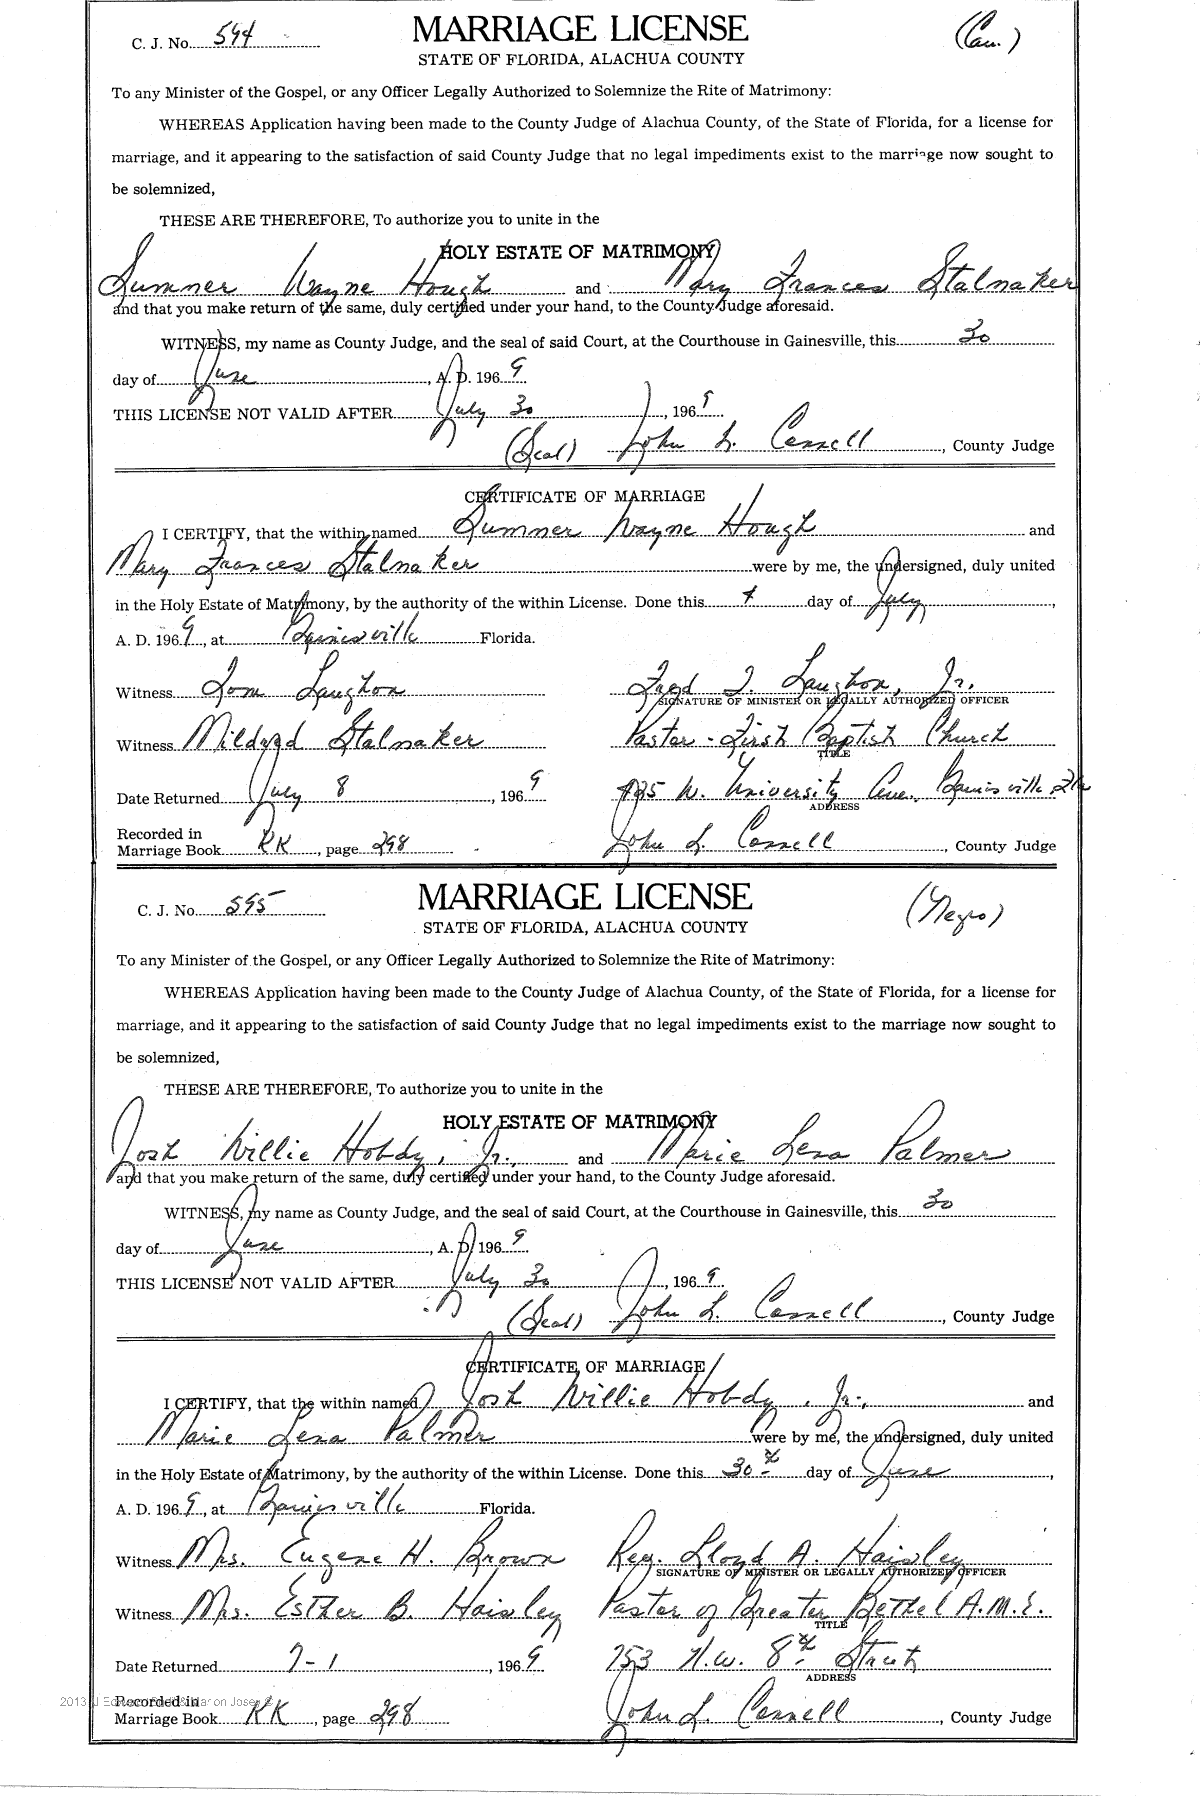 C. J. No. 594
MARRIAGE LICENSE
(Cau.)
STATE OF FLORIDA, ALACHUA COUNTY
To any Minister of the Gospel, or any Officer Legally Authorized to Solemnize the Rite of Matrimony:
WHEREAS Application having been made to the County Judge of Alachua County, of the State of Florida, for a license for
marriage, and it appearing to the satisfaction of said County Judge that no legal impediments exist to the marriage now sought to
be solemnized,
THESE ARE THEREFORE, To authorize you to unite in the
HOLY ESTATE OF MATRIMONY
Sumner Wayne Hough and Mary Frances Stalnaker
and that you make return of the same, duly certified under your hand, to the County Judge aforesaid.
WITNESS, my name as County Judge, and the seal of said Court, at the Courthouse in Gainesville, this 30
day of June, A. D. 196 9
THIS LICENSE NOT VALID AFTER July 30, 196 9
(Seal) John L. Connell, County Judge
CERTIFICATE OF MARRIAGE
I CERTIFY, that the within named Sumner Wayne Hough and
Mary Frances Stalnaker were by me, the undersigned, duly united
in the Holy Estate of Matrimony, by the authority of the within License. Done this 4 day of July,
A. D. 196 9, at Gainesville Florida.
Witness Tom Laughon Fred T. Laughon, Jr.
SIGNATURE OF MINISTER OR LEGALLY AUTHORIZED OFFICER
Witness Mildred Stalnaker Pastor - First Baptist Church
TITLE
Date Returned July 8, 196 9 425 W. University Ave., Gainesville, Fla
ADDRESS
Recorded in
Marriage Book KK, page 298 John L. Connell, County Judge
C. J. No. 595
MARRIAGE LICENSE
(Negro)
STATE OF FLORIDA, ALACHUA COUNTY
To any Minister of the Gospel, or any Officer Legally Authorized to Solemnize the Rite of Matrimony:
WHEREAS Application having been made to the County Judge of Alachua County, of the State of Florida, for a license for
marriage, and it appearing to the satisfaction of said County Judge that no legal impediments exist to the marriage now sought to
be solemnized,
THESE ARE THEREFORE, To authorize you to unite in the
HOLY ESTATE OF MATRIMONY
Josh Willie Hobdy, Jr., and Marie Lena Palmer
and that you make return of the same, duly certified under your hand, to the County Judge aforesaid.
WITNESS, my name as County Judge, and the seal of said Court, at the Courthouse in Gainesville, this 30
day of June, A. D. 196 9
THIS LICENSE NOT VALID AFTER July 30, 196 9
(Seal) John L. Connell, County Judge
CERTIFICATE OF MARRIAGE
I CERTIFY, that the within named Josh Willie Hobdy, Jr., and
Marie Lena Palmer were by me, the undersigned, duly united
in the Holy Estate of Matrimony, by the authority of the within License. Done this 30th day of June,
A. D. 196 9, at Gainesville Florida.
Witness Mrs. Eugene H. Brown Rev. Lloyd A. Haisley
SIGNATURE OF MINISTER OR LEGALLY AUTHORIZED OFFICER
Witness Mrs. Esther B. Haisley Pastor of Greater Bethel A.M.E.
TITLE
Date Returned 7-1, 196 9 753 N.W. 8th Street
ADDRESS
Recorded in
Marriage Book KK, page 298 John L. Connell, County Judge